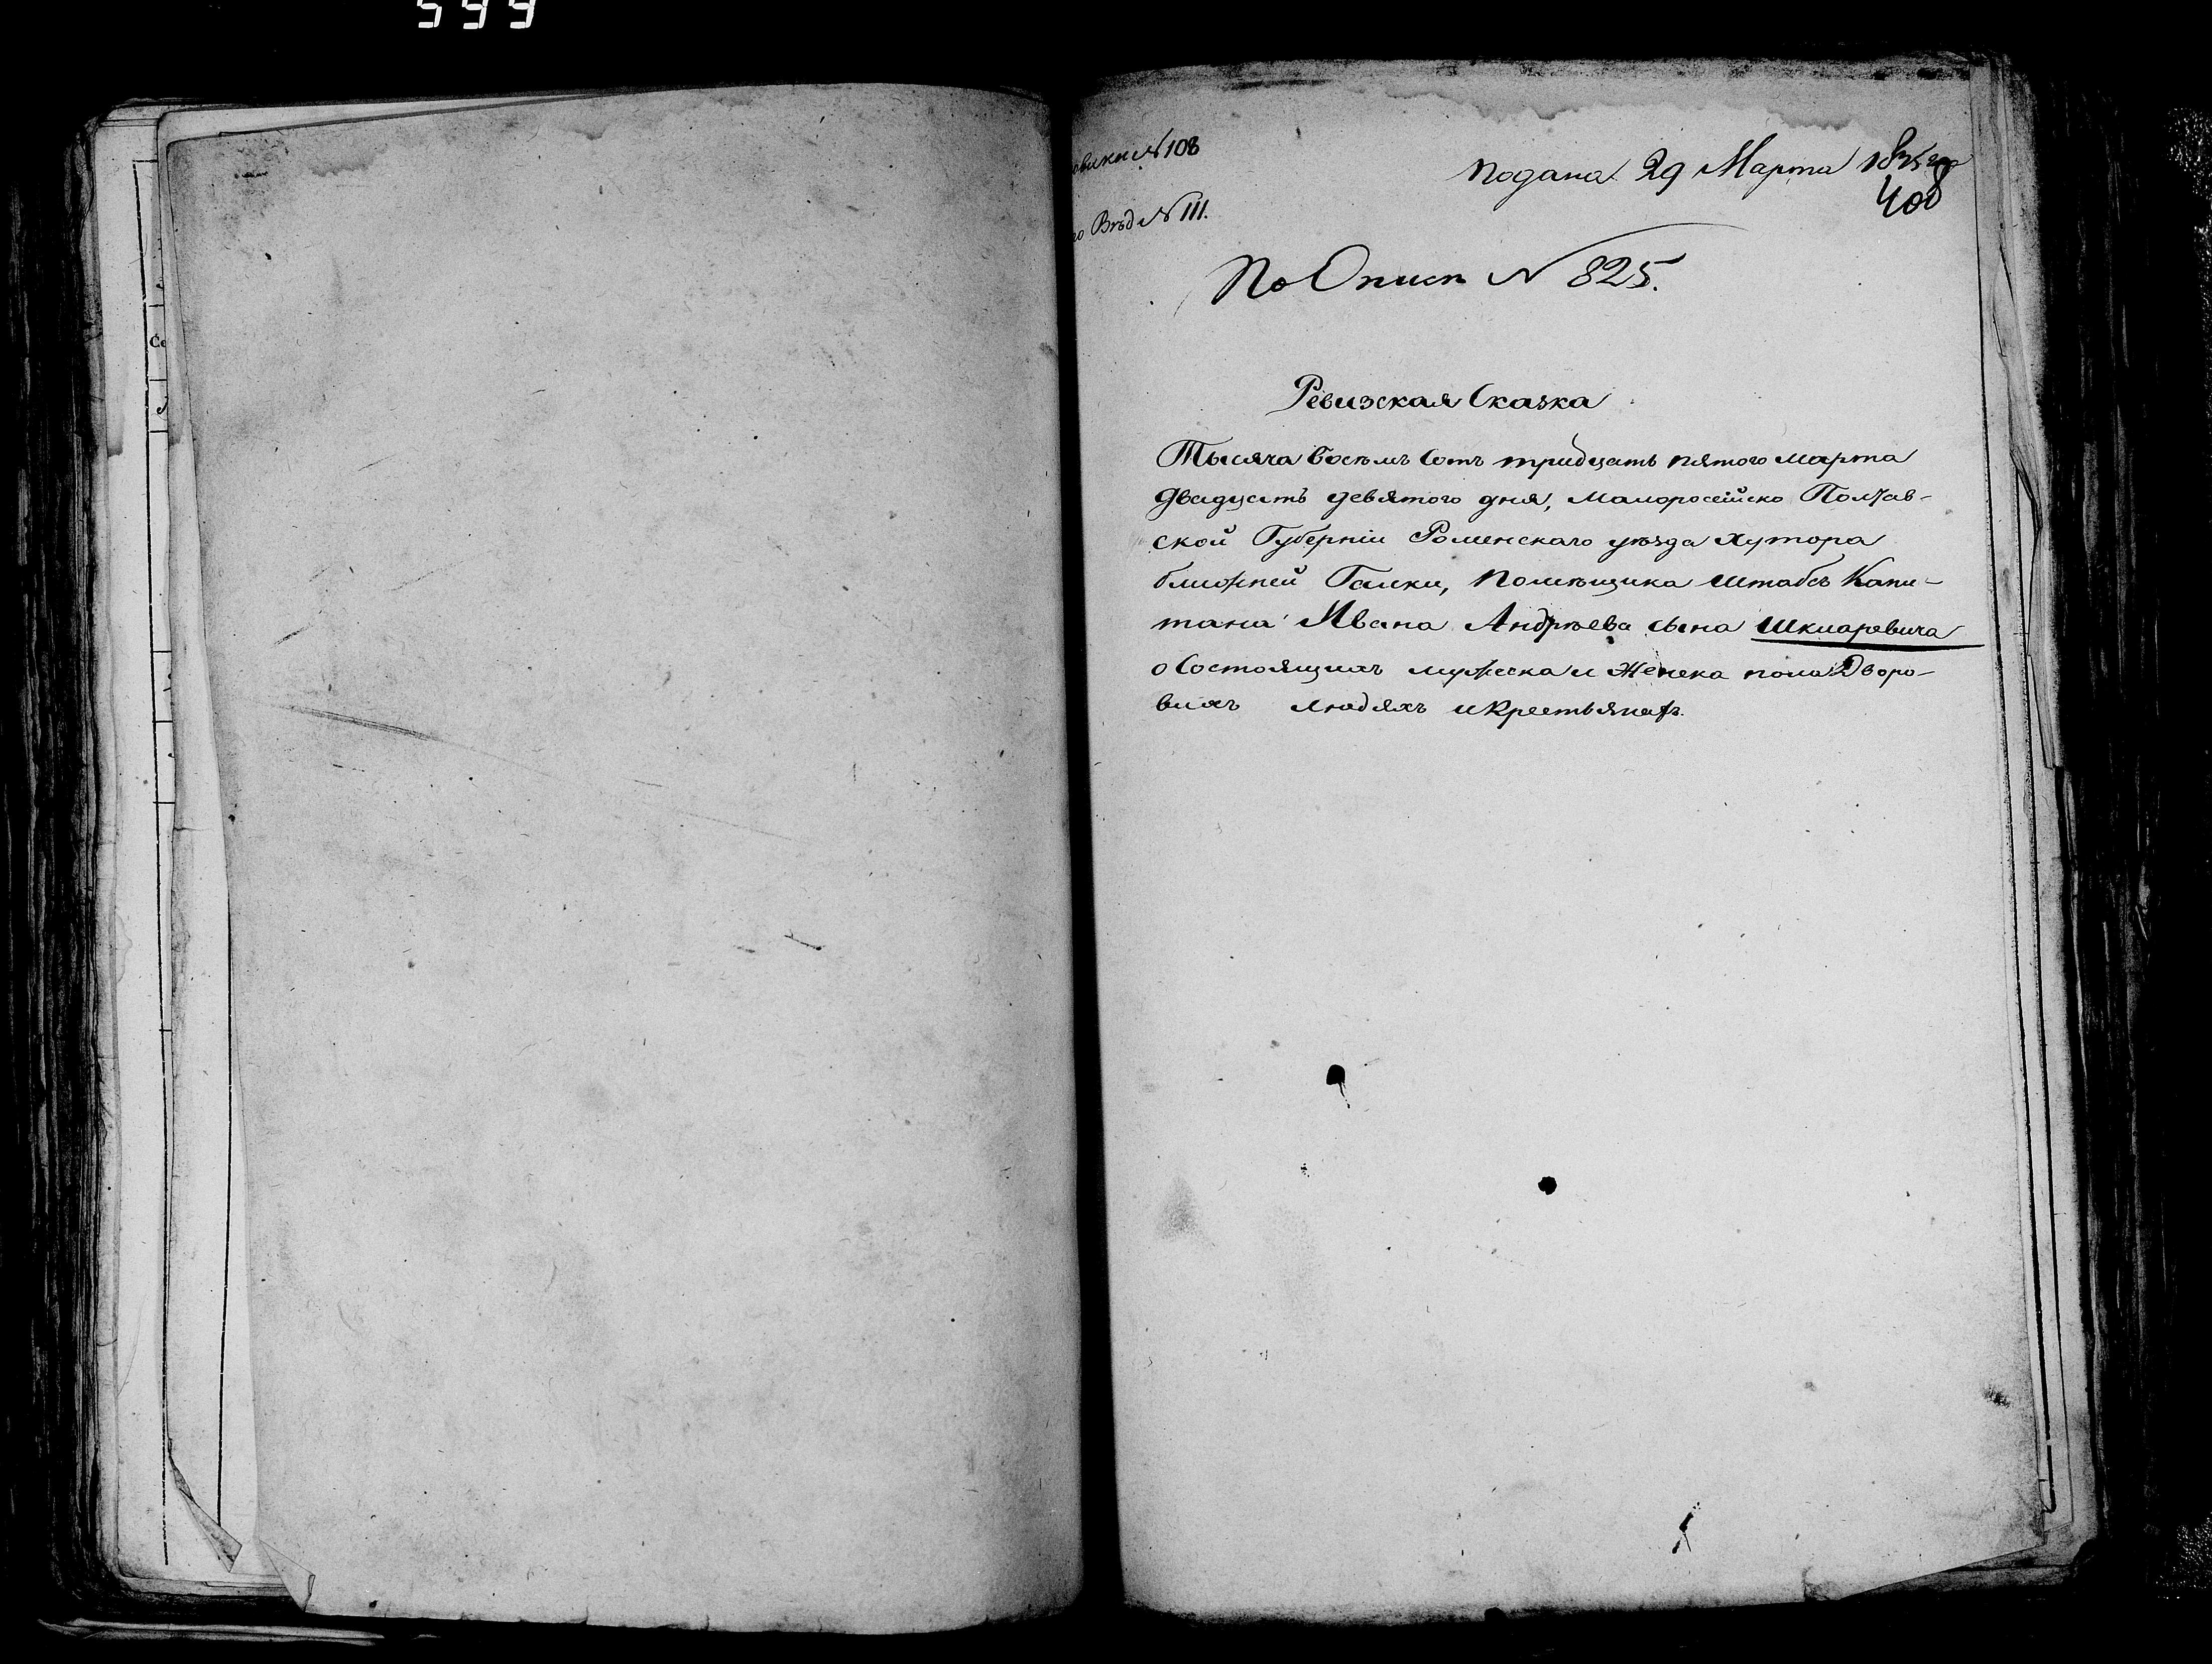 599
овики №108
Подана 29 Марта 1835 го
408
го Вѣд №111.
По Описи № 825.
Ревизская Сказка
Тысяча восемъ сотъ тридцать пятого марта
двадцать девятого дня, Малоросейско Полтав-
ской Губерніи Роменскаго уѣзда хутора
ближней Галки, помѣщика Штабсъ Капи-
тана Ивана Андрѣева сына Шкляревича
о Состоящихъ мужеска и Женска пола Дворо-
выхъ людяхъ и крестьянахъ.